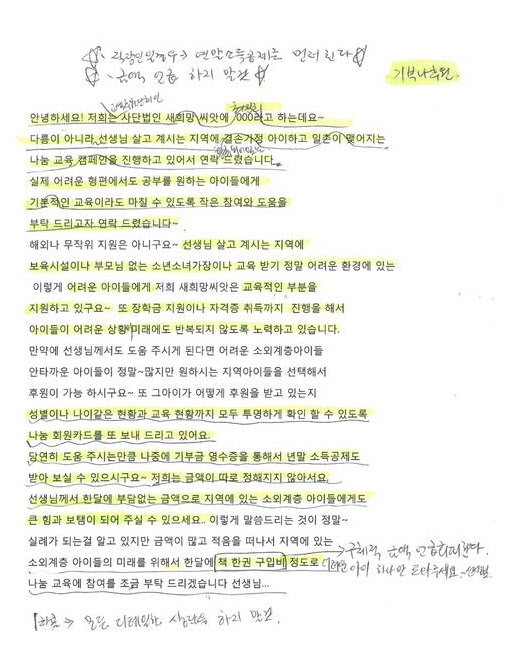 직장인일경우 → 연말소득공제로 먼저
금액 언급 하지 말것
기부나 후원
안녕하세요! 저희는 사단법인 새희망 씨앗에 000라고 하는데요~
다름이 아니라 선생님 살고 계시는 지역에 결손가정 아이하고 일촌이 맺어지는
나눔 교육 캠페인을 진행하고 있어서 연락 드렸습니다.
실제 어려운 형편에서도 공부를 원하는 아이들에게
기본적인 교육이라도 마칠 수 있도록 작은 참여와 도움을
부탁 드리고자 연락 드렸습니다~
해외나 무작위 지원은 아니구요~ 선생님 살고 계시는 지역에
보육시설이나 부모님 없는 소년소녀가장이나 교육 받기 정말 어려운 환경에 있는
이렇게 어려운 아이들에게 저희 새희망씨앗은 교육적인 부분을
지원하고 있구요~ 또 장학금 지원이나 자격증 취득까지 진행을 해서
아이들이 어려운 상황 미래에도 반복되지 않도록 노력하고 있습니다.
만약에 선생님께서도 도움 주시게 된다면 어려운 소외계층아이들
안타까운 아이들이 정말~많지만 원하시는 지역아이들을 선택해서
후원이 가능 하시구요~ 또 그아이가 어떻게 후원을 받고 있는지
성별이나 나이같은 현황과 교육 현황까지 모두 투명하게 확인 할 수 있도록
나눔 회원카드를 또 보내 드리고 있어요.
당연히 도움 주시는만큼 나중에 기부금 영수증을 통해서 년말 소득공제도
받아 보실 수 있으시구요~ 저희는 금액이 따로 정해지지 않아서요.
선생님께서 한달에 부담없는 금액으로 지역에 있는 소외계층 아이들에게도
큰 힘과 보탬이 되어 주실 수 있으세요.. 이렇게 말씀드리는 것이 정말~
실례가 되는걸 알고 있지만 금액이 많고 적음을 떠나서 지역에 있는
소외계층 아이들의 미래를 위해서 한달에 책 한권 구입비 정도로
→ 구체적 금액 언급회피한다.
아이 하나만 도와주세요~
나눔 교육에 참여를 조금 부탁 드리겠습니다 선생님...
→ 모든 디테일한 상담은 하지 말것